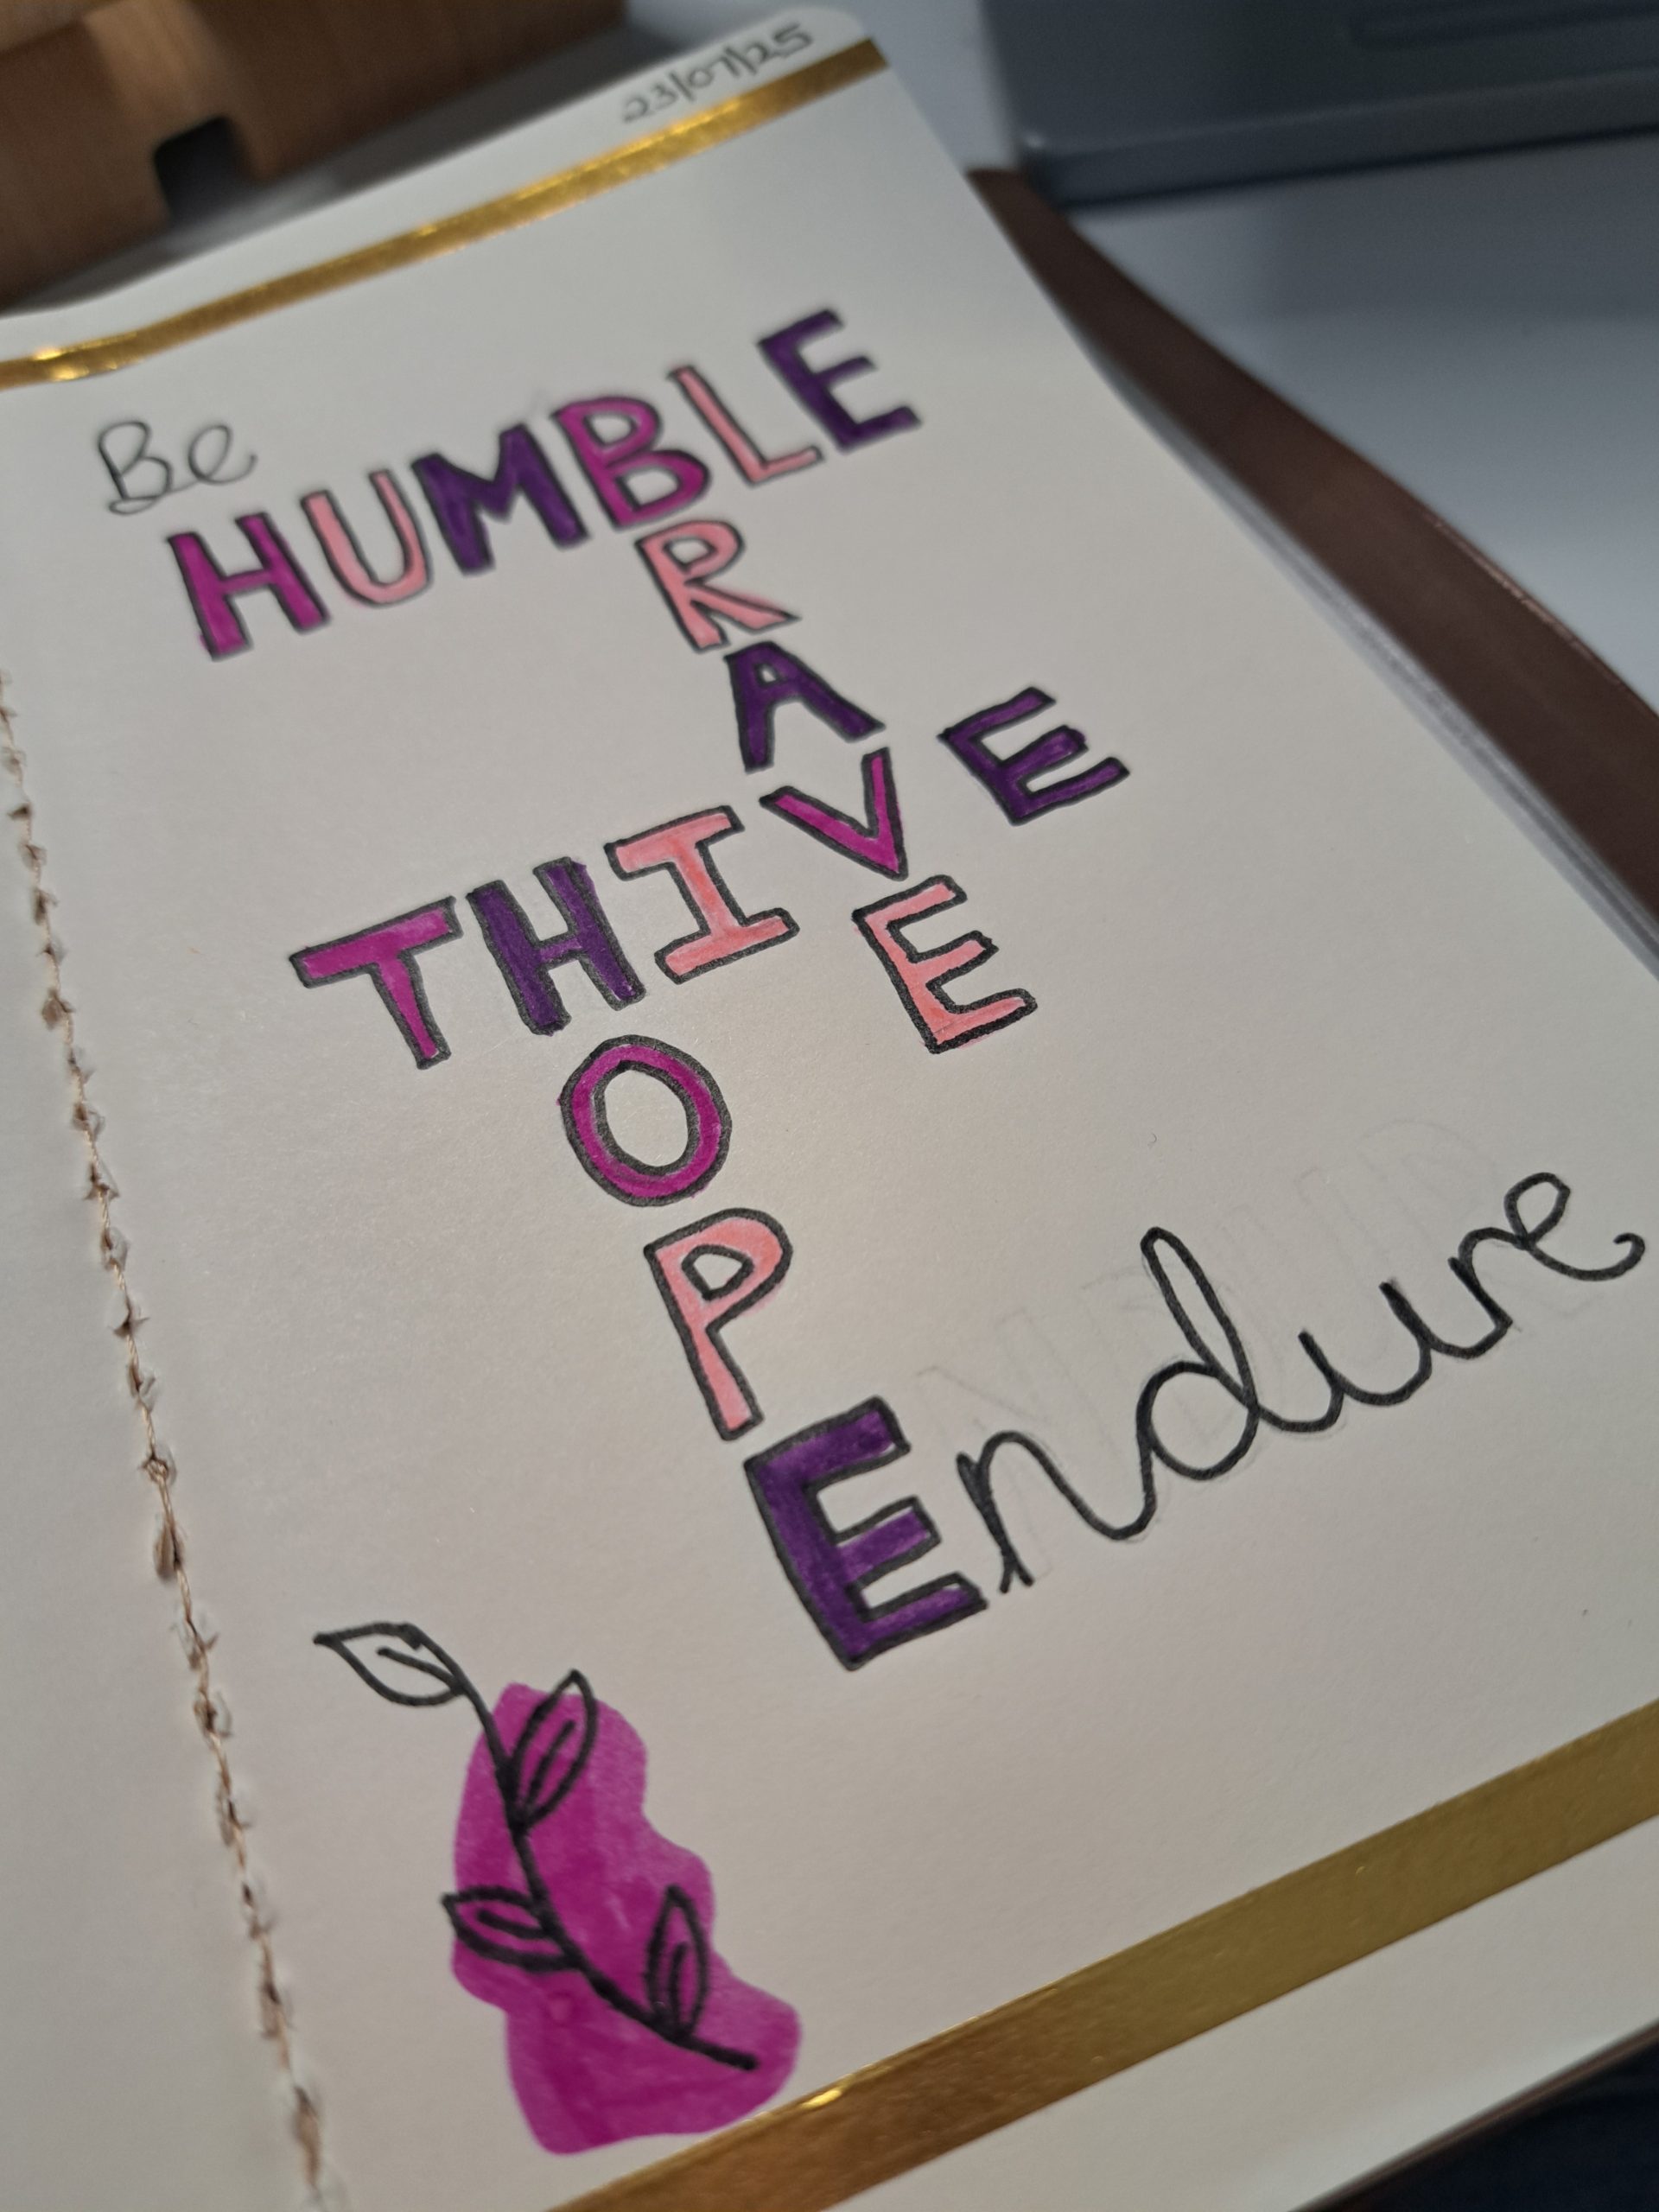 23/07/25
Be
HUMBLE
BRAVE
THIVE
HOPE
Endure